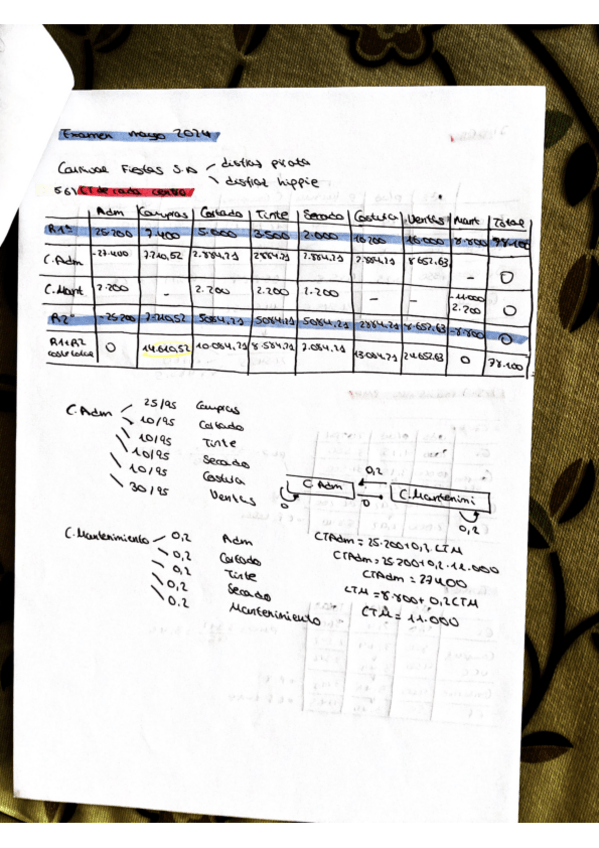 Examen mayo 2024
Carnival Fiestas S.A - disfraz pirata
- disfraz hippie
56) CT de cada centro
Adm Compras Cortado Tinte Secado Costura Ventas Mant Total
R.1º 25.200 7.400 5.000 3.500 2.000 10.200 16.000 8.800 78.100
C.Adm -27.400 7.210,52 2.884,21 2884,21 2.884,21 2.884,21 8.652,63 - 0
C.Mant 2.200 - 2.200 2.200 2.200 - - -11.000 2.200 0
R2º -25.200 7.210,52 5084,21 5084,21 5084,21 2884,21 8.652,63 -8.800 0
R1+R2 0 14.610,52 10.084,21 8.584,21 7.084,21 13.084,21 24.652,63 0 78.100
C.Adm 25/95 Compras
10/95 Cortado
10/95 Tinte
10/95 Secado
10/95 Costura
30/95 Ventas
0,2
C.Adm C.Mantenimi
0 0 0,2
C.Mantenimiento 0,2 Adm
0,2 Cortado
0,2 Tinte
0,2 Secado
0.2 Mantenimiento
CTAdm = 25.200+0,2 CTM
CTAdm = 25.200+0,2·11.000
CTAdm = 27400
CTM = 8.800+ 0,2CTM
CTM = 11.000